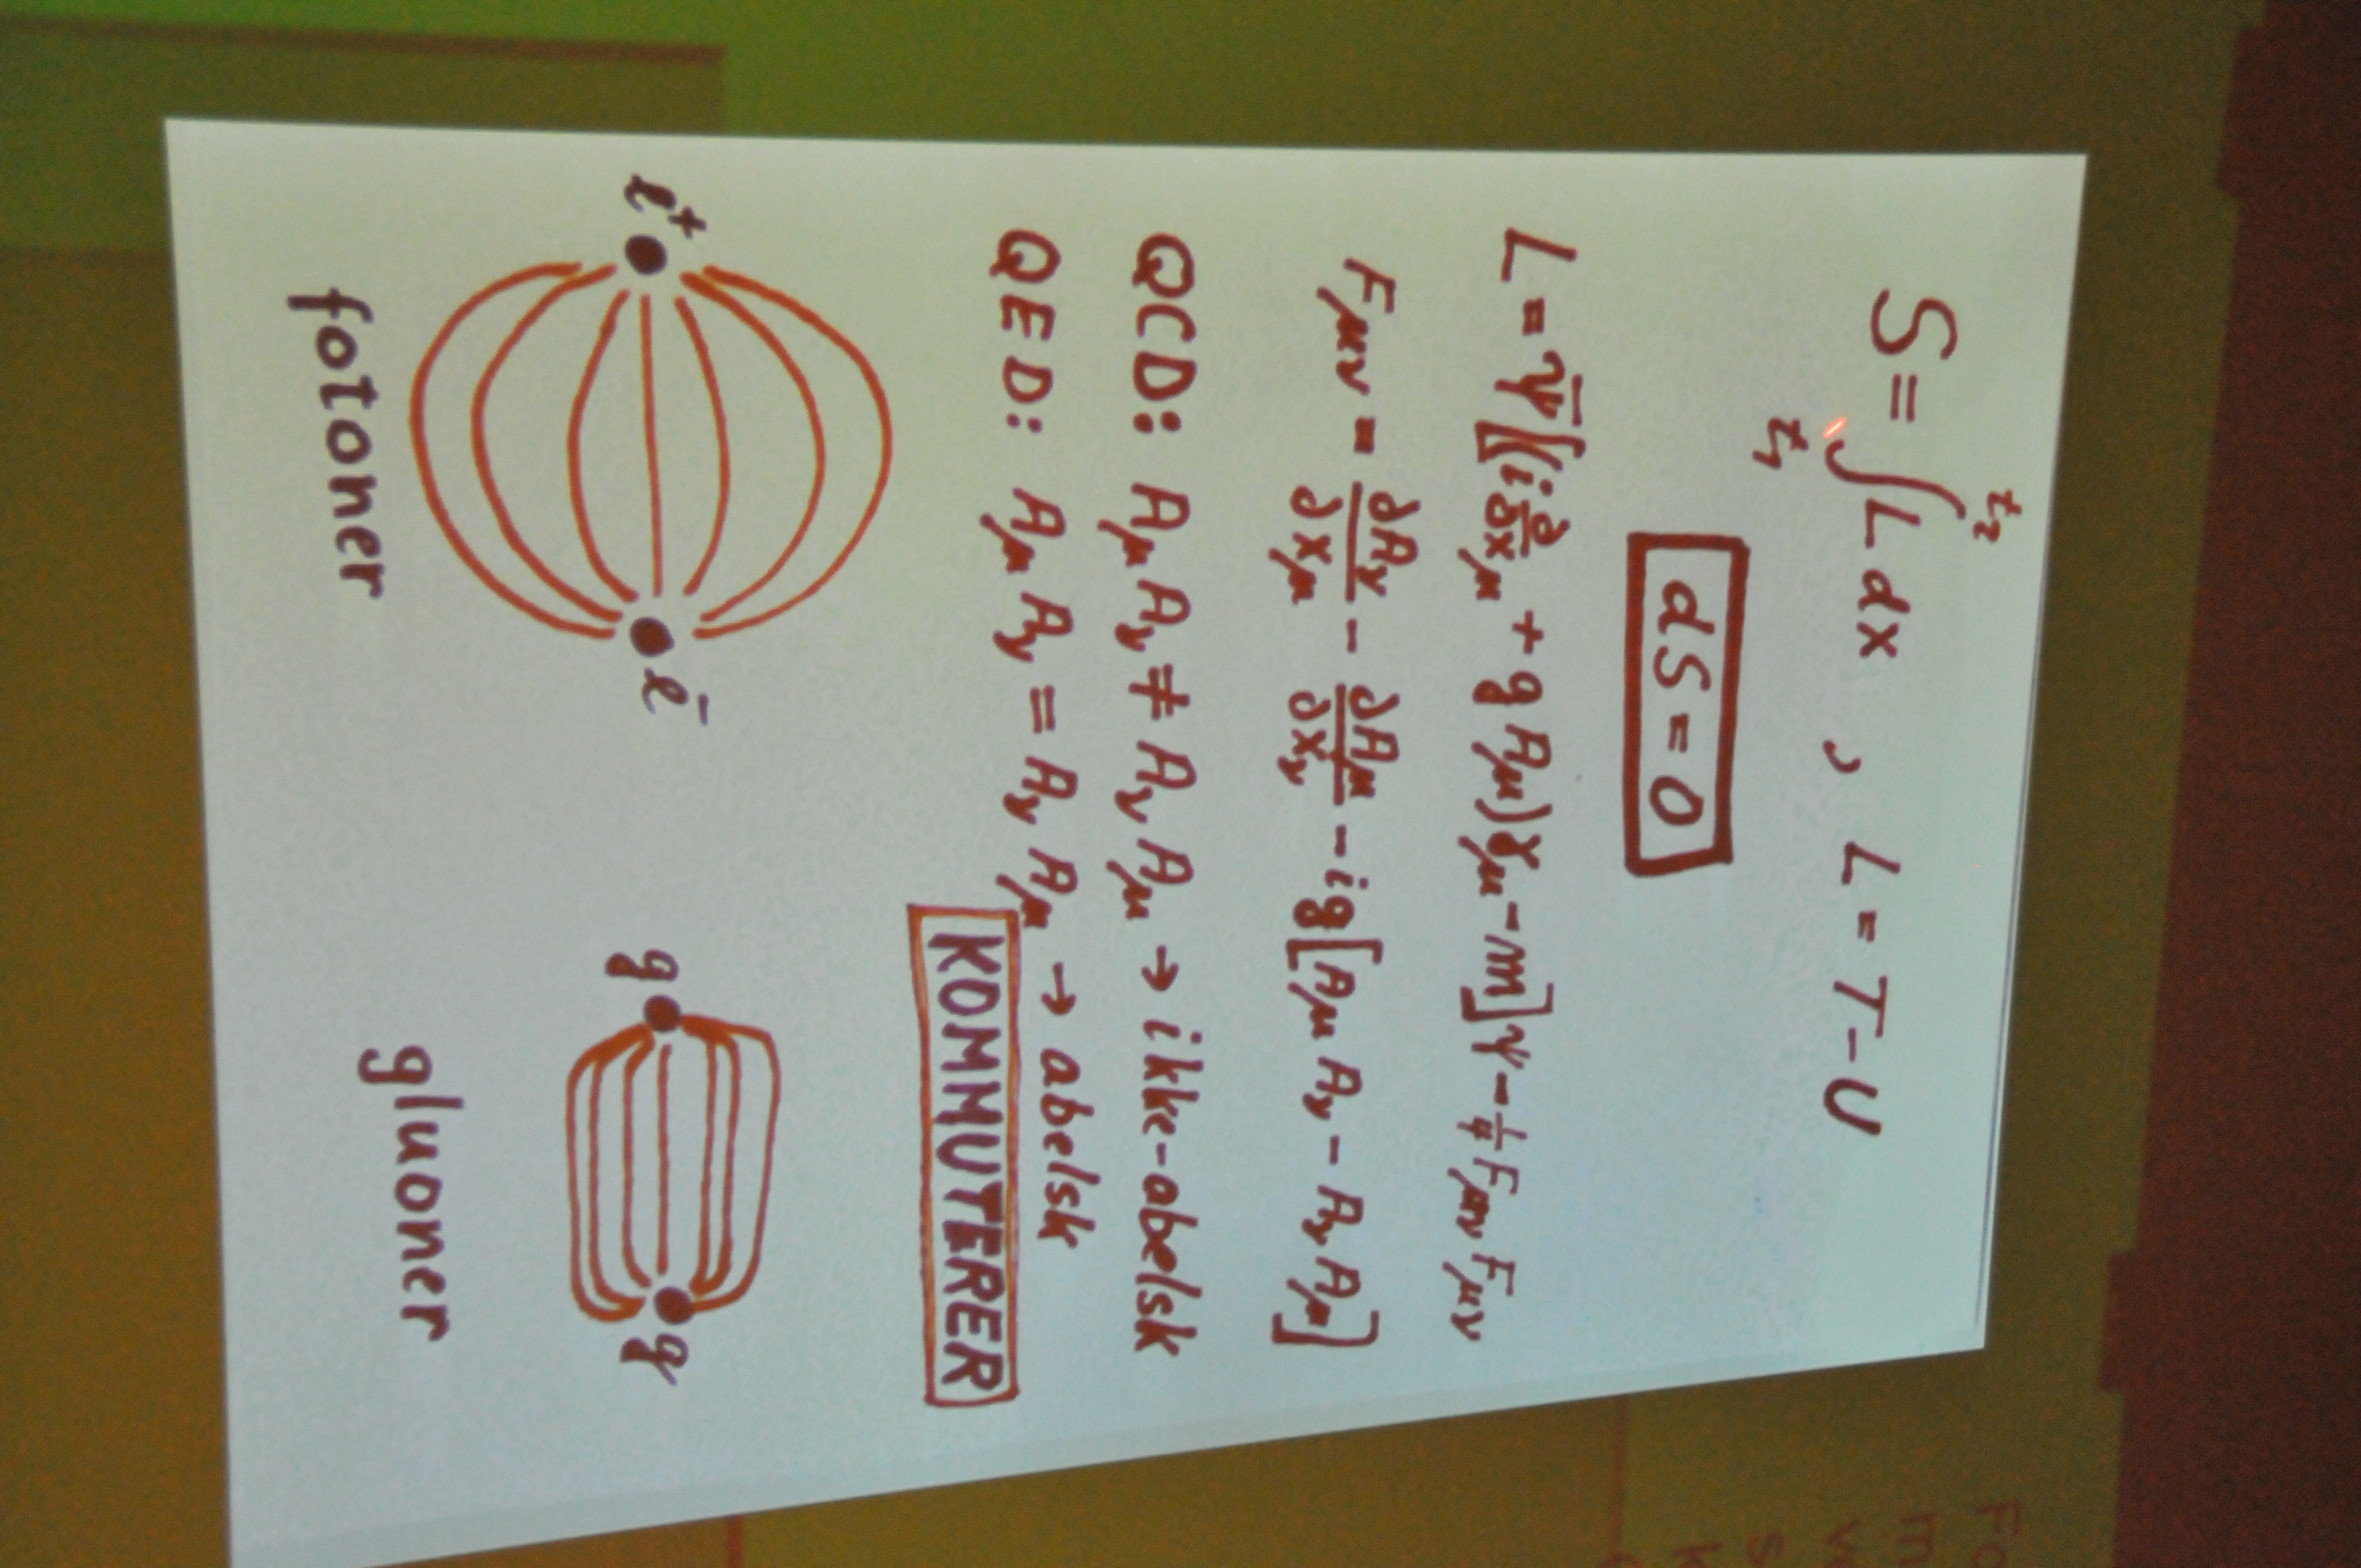 S = ∫ₜ₁ᵗ² L dx , L = T - U
dS = 0
L = ψ̄[(i ∂/∂xμ + g Aμ)γμ - m]ψ - 1/4 Fμν Fμν
Fμν = ∂Aν/∂xμ - ∂Aμ/∂xν - ig[Aμ Aν - Aν Aμ]
QCD: Aμ Aν ≠ Aν Aμ → ikke-abelsk
QED: Aμ Aν = Aν Aμ → abelsk
KOMMUTERER
e⁺ e⁻ q q
fotoner gluoner